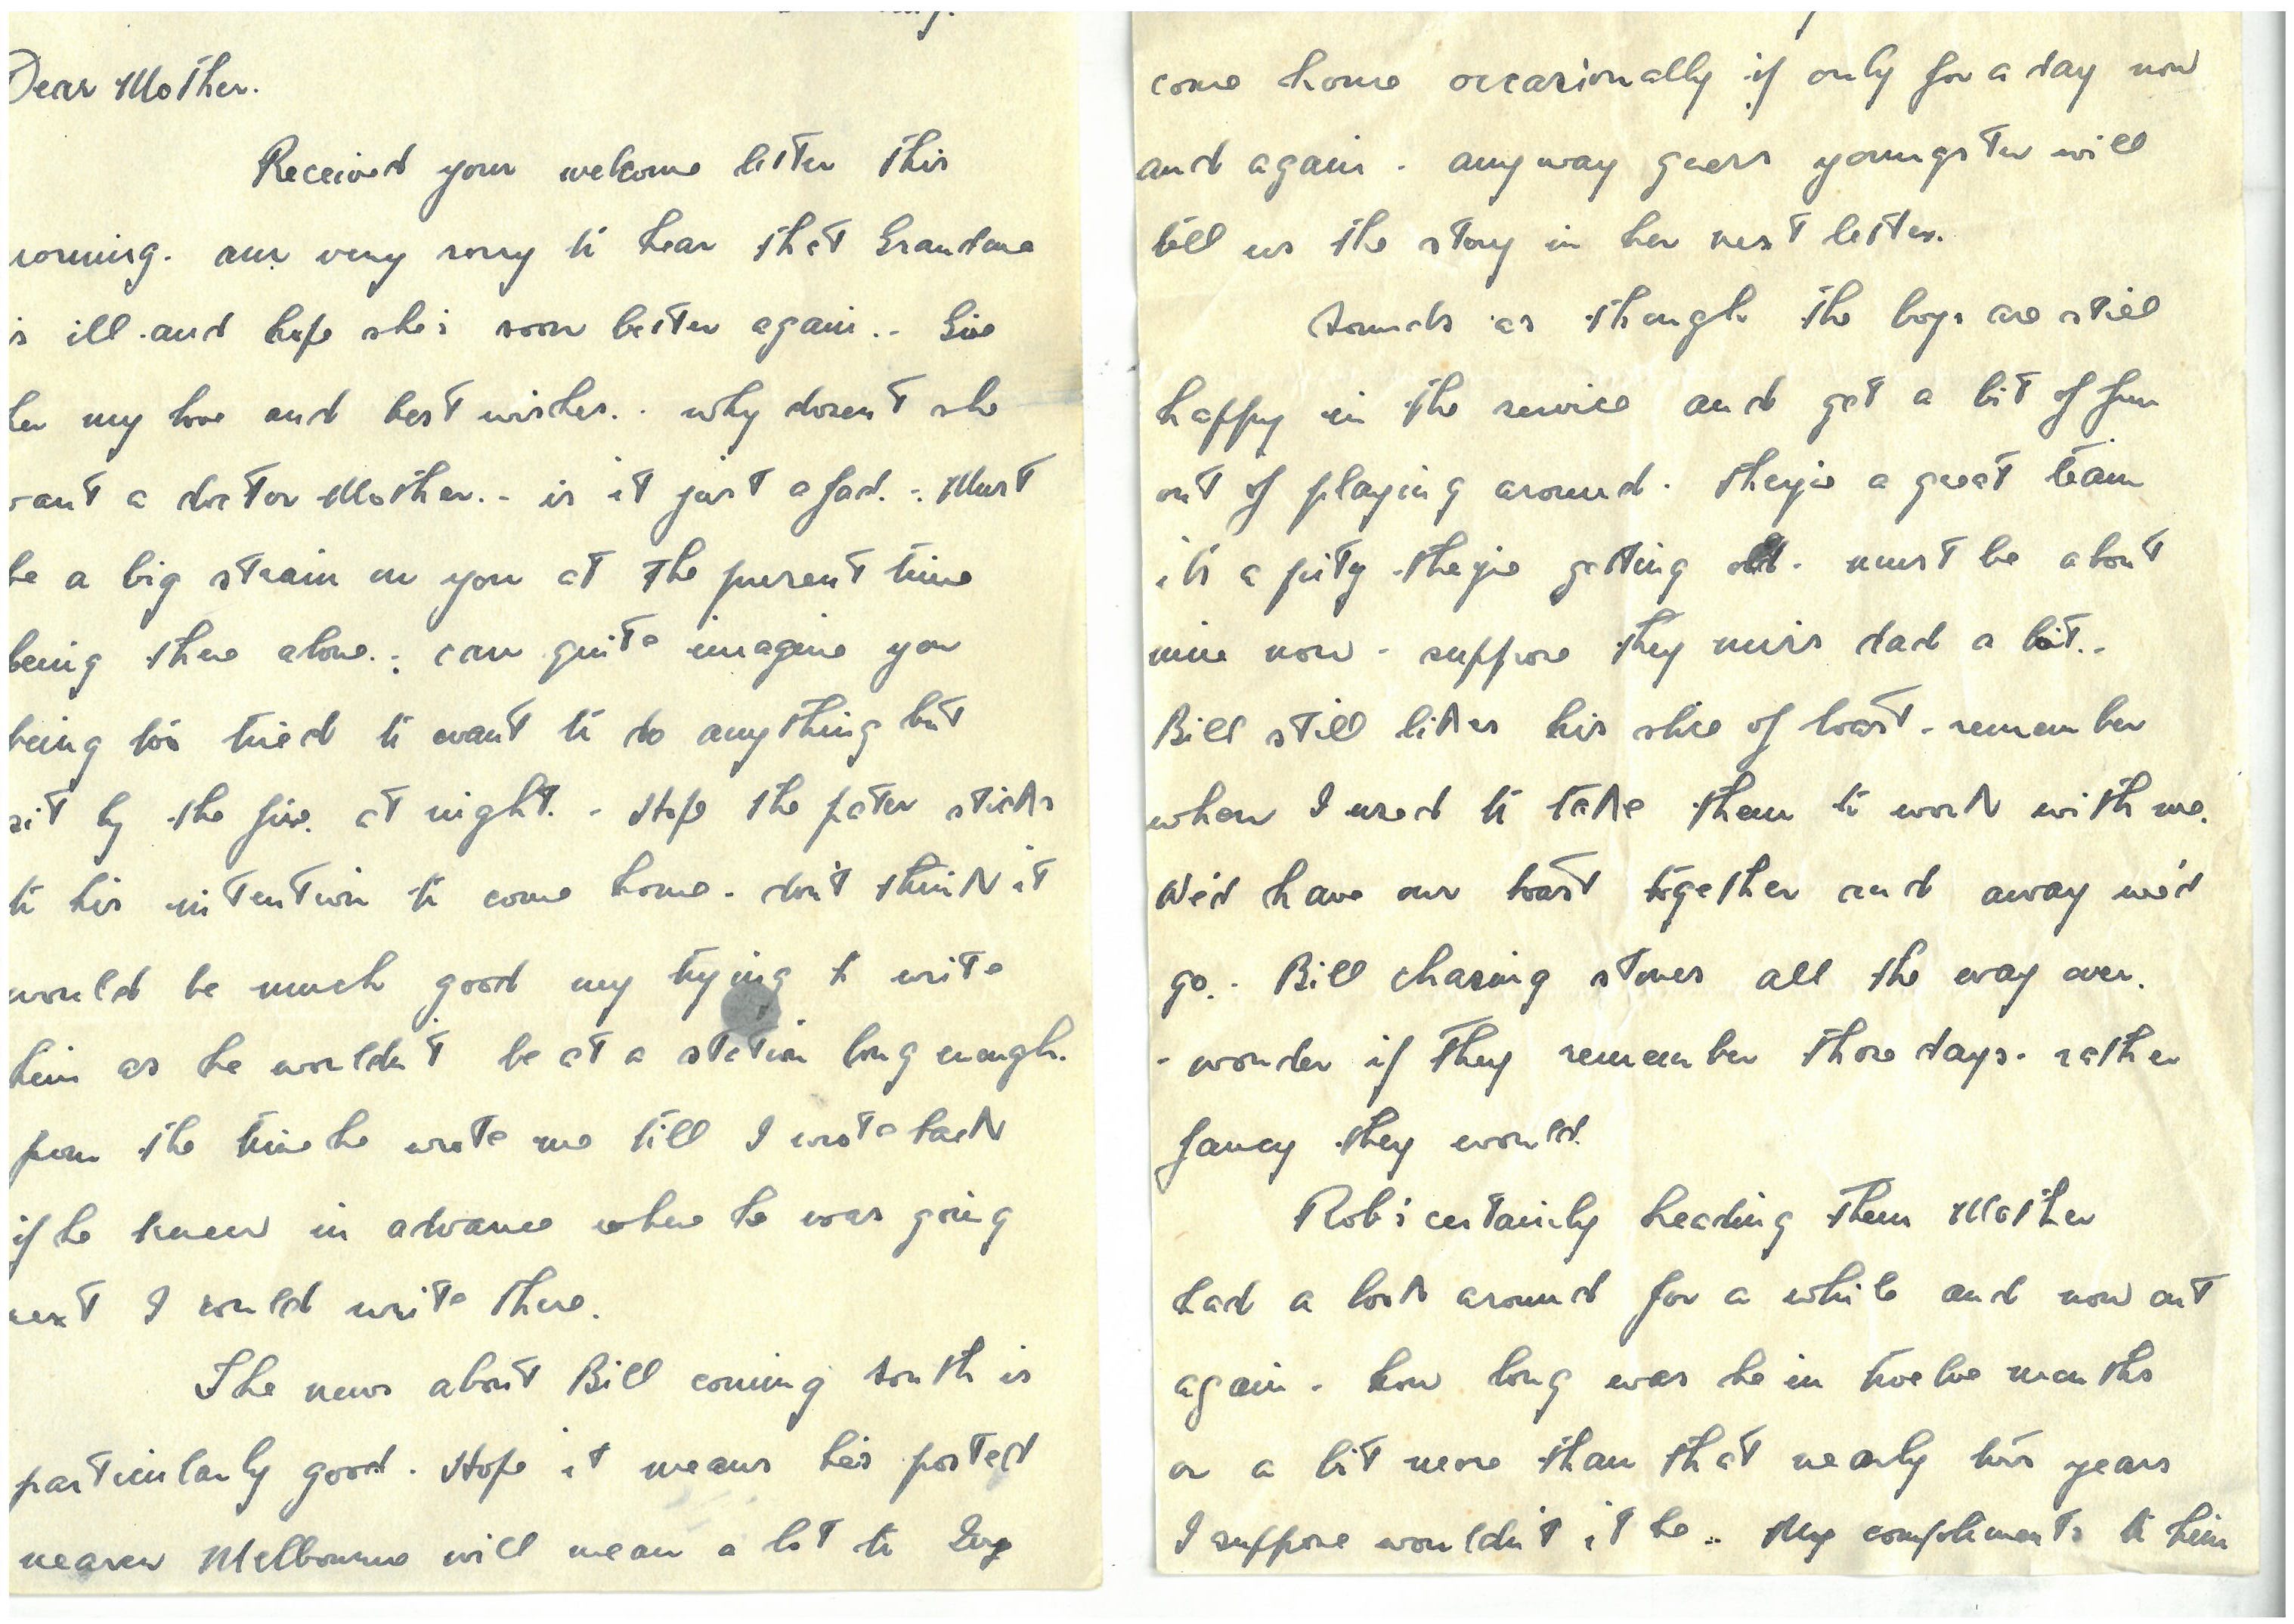 Dear Mother.
Received your welcome letter this
morning. am very sorry to hear that Grandma
is ill and hope she's soon better again.. Give
her my love and best wishes.. why dosen't she
want a doctor Mother.. is it just a fad.. Must
be a big strain on you at the present time
being there alone.. can quite imagine you
being too tired to want to do anything but
sit by the fire at night. - Hope the pater sticks
to his intention to come home. don't think it
would be much good my trying to write
him as he wouldn't be at a station long enough.
from the time he wrote me till I wrote back
if he knew in advance where he was going
next I could write there.
The news about Bill coming South is
particularly good. Hope it means he's posted
nearer Melbourne will mean a lot to
come home occasionally if only for a day now
and again. anyway guess youngster will
tell us the story in her next letter.
Sounds as though the boys are still
happy in the service and get a bit of fun
out of playing around. they're a great team
it's a pity they're getting old. must be about
nine now - suppose they miss dad a bit..
Bill still likes his slice of toast - remember
when I used to take them to work with me.
We'd have our toast together and away we'd
go.. Bill chasing stones all the way over.
- wonder if they remember those days. rather
fancy they would.
Rob's certainly heading them Mother
had a look around for a while and now out
again - how long was he in twelve months
or a bit more than that nearly two years
I suppose wouldn't it be .. My compliments to him